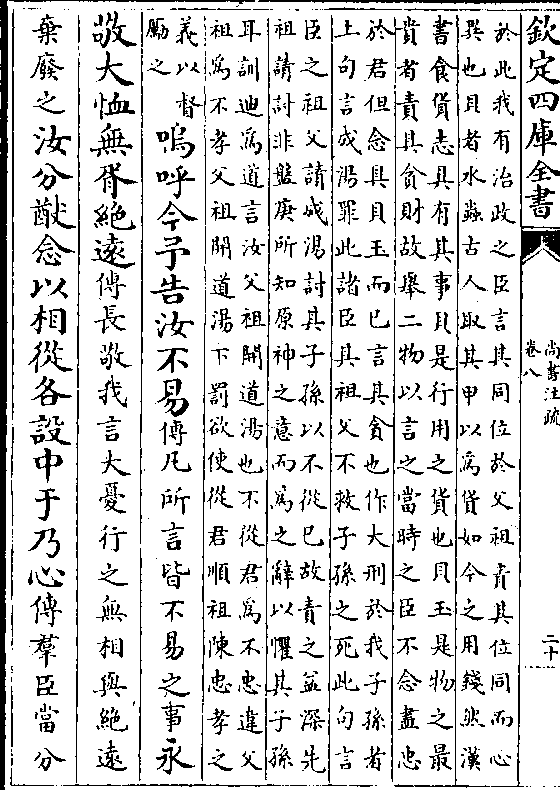 欽定四庫全書
尚書注疏
卷八
二十
於此我有治政之臣言其同位於父祖責其位同而心
異也貝者水蟲古人取其甲以為貨如今之用錢然漢
書食貨志具有其事貝是行用之貨也貝玉是物之最
貴者責其貪財故舉二物以言之當時之臣不念盡忠
於君但念具貝玉而已言其貪也作大刑於我子孫者
上句言成湯罪此諸臣其祖父不救子孫之死此句言
臣之祖父請成湯討其子孫以不從已故責之益深先
祖請討非盤庚所知原神之意而為之辭以懼其子孫
耳訓迪為道言汝父祖開道湯也不從君為不忠違父
祖為不孝父祖開道湯下罰欲使從君順祖陳忠孝之
義以督
勵之
嗚呼今予告汝不易傳凡所言皆不易之事永
敬大恤無胥絶遠傳長敬我言大憂行之無相與絶遠
棄廢之汝分猷念以相從各設中于乃心傳羣臣當分